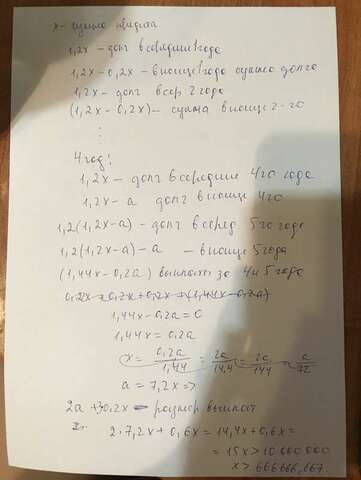 x - сумма кредита
1,2x - долг в середине 1 года
1,2x - 0,2x - в конце 1 года сумма долга
1,2x - долг в сер 2 года
(1,2x - 0,2x) - сумма в конце 2-го
⋮
4 год:
1,2x - долг в середине 4го года
1,2x - a долг в конце 4го
1,2(1,2x - a) - долг в серед 5го года
1,2(1,2x - a) - a - в конце 5 года
(1,44x - 0,2a) выплатят за 4 и 5 года
1,44x - 0,2a = 0
1,44x = 0,2a
x = 0,2a/1,44 = 2a/14,4 = 2a/144 = a/72
a = 7,2x =>
2a + 3·0,2x - размер выплат
2·7,2x + 0,6x = 14,4x + 0,6x =
= 15x > 10 000 000
x > 666 666,667